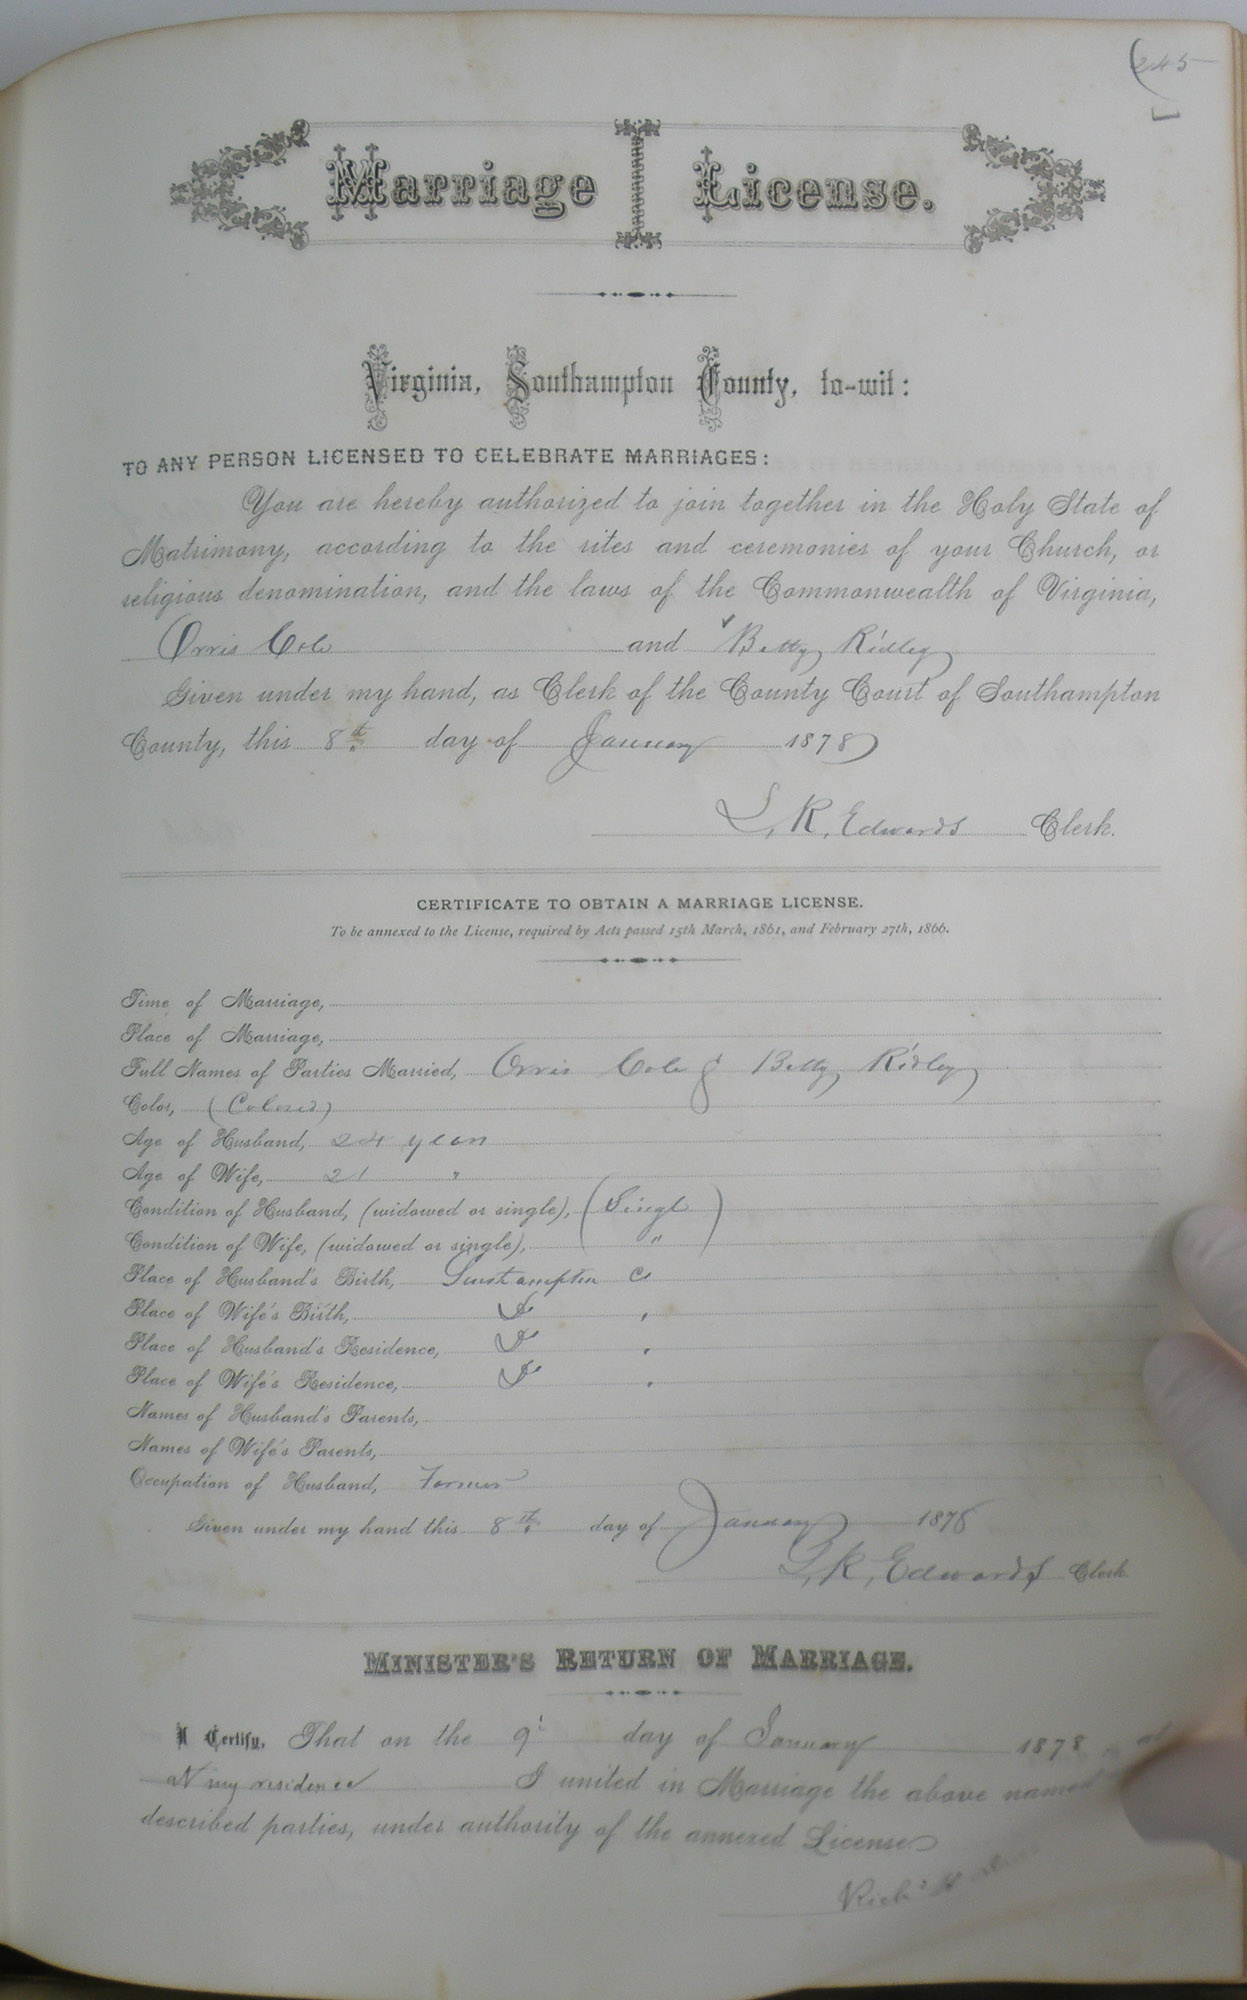 245
Marriage License.
Virginia, Southampton County, to-wit:
TO ANY PERSON LICENSED TO CELEBRATE MARRIAGES:
You are hereby authorized to join together in the Holy State of
Matrimony, according to the rites and ceremonies of your Church, or
religious denomination, and the laws of the Commonwealth of Virginia,
Orris Cole and Betty Ridley
Given under my hand, as Clerk of the County Court of Southampton
County, this 8th day of January 1878
L. R. Edwards Clerk.
CERTIFICATE TO OBTAIN A MARRIAGE LICENSE.
To be annexed to the License, required by Acts passed 15th March, 1861, and February 27th, 1866.
Time of Marriage,
Place of Marriage,
Full Names of Parties Married, Orris Cole & Betty Ridley
Color, (Colored)
Age of Husband, 24 years
Age of Wife, 21 "
Condition of Husband, (widowed or single), (Single)
Condition of Wife, (widowed or single), "
Place of Husband's Birth, Southampton Co
Place of Wife's Birth, Do "
Place of Husband's Residence, Do "
Place of Wife's Residence, Do "
Names of Husband's Parents,
Names of Wife's Parents,
Occupation of Husband, Farmer
Given under my hand this 8th day of January 1878
L. R. Edwards Clerk
MINISTER'S RETURN OF MARRIAGE.
I Certify, That on the 9th day of January 1878, at
at my residence I united in Marriage the above named
described parties, under authority of the annexed License
Richd